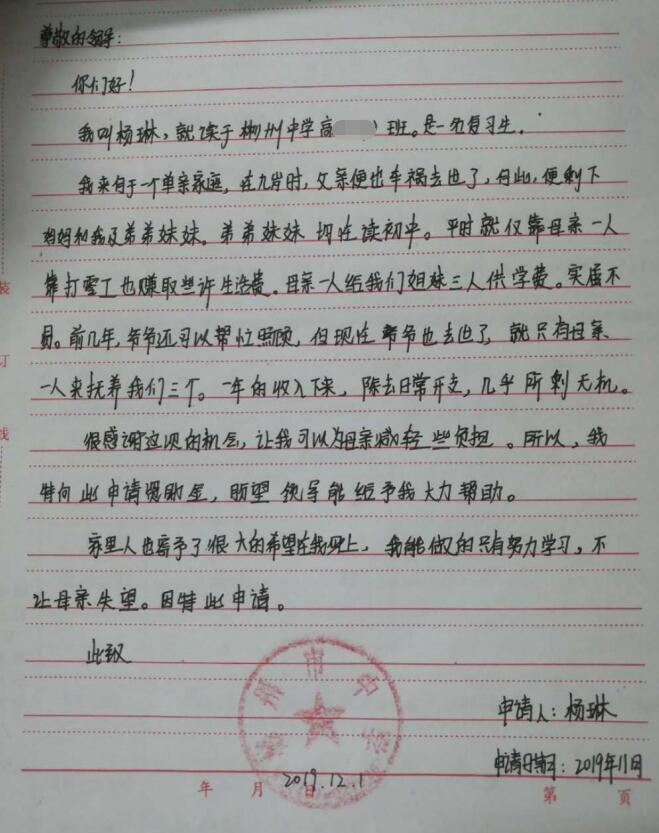 尊敬的领导:
你们好!
我叫杨琳,就读于彬州中学高 班。是一名复习生.
我来自于一个单亲家庭,在九岁时,父亲便也车祸去世了,自此,便剩下
妈妈和我及弟弟妹妹。弟弟妹妹均在读初中。平时就仅靠母亲一人
靠打零工也赚取些许生活费.母亲一人给我们姐妹三人供学费。实属不
易。前几年,爷爷还可以帮忙照顾,但现在爷爷也去世了,就只有母亲
一人来抚养我们三个。一年的收入下来,除去日常开支,几乎所剩无机。
很感谢这次的机会,让我可以为母亲减轻些负担。所以,我
特向此申请资助金,盼望领导能给予我大力帮助。
家里人也寄予了很大的希望在我身上,我能做的只有努力学习,不
让母亲失望。因特此申请。
此致
申请人:杨琳
申请日期:2019年11月
年 月 日
2019.12.1
第 页
彬州市中学
装
订
线